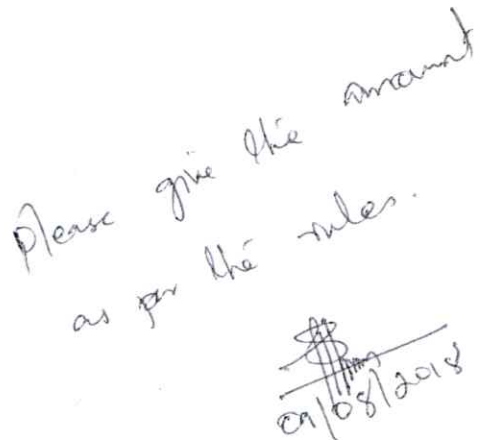 Please give the amount
as per the rules.
09/08/2018